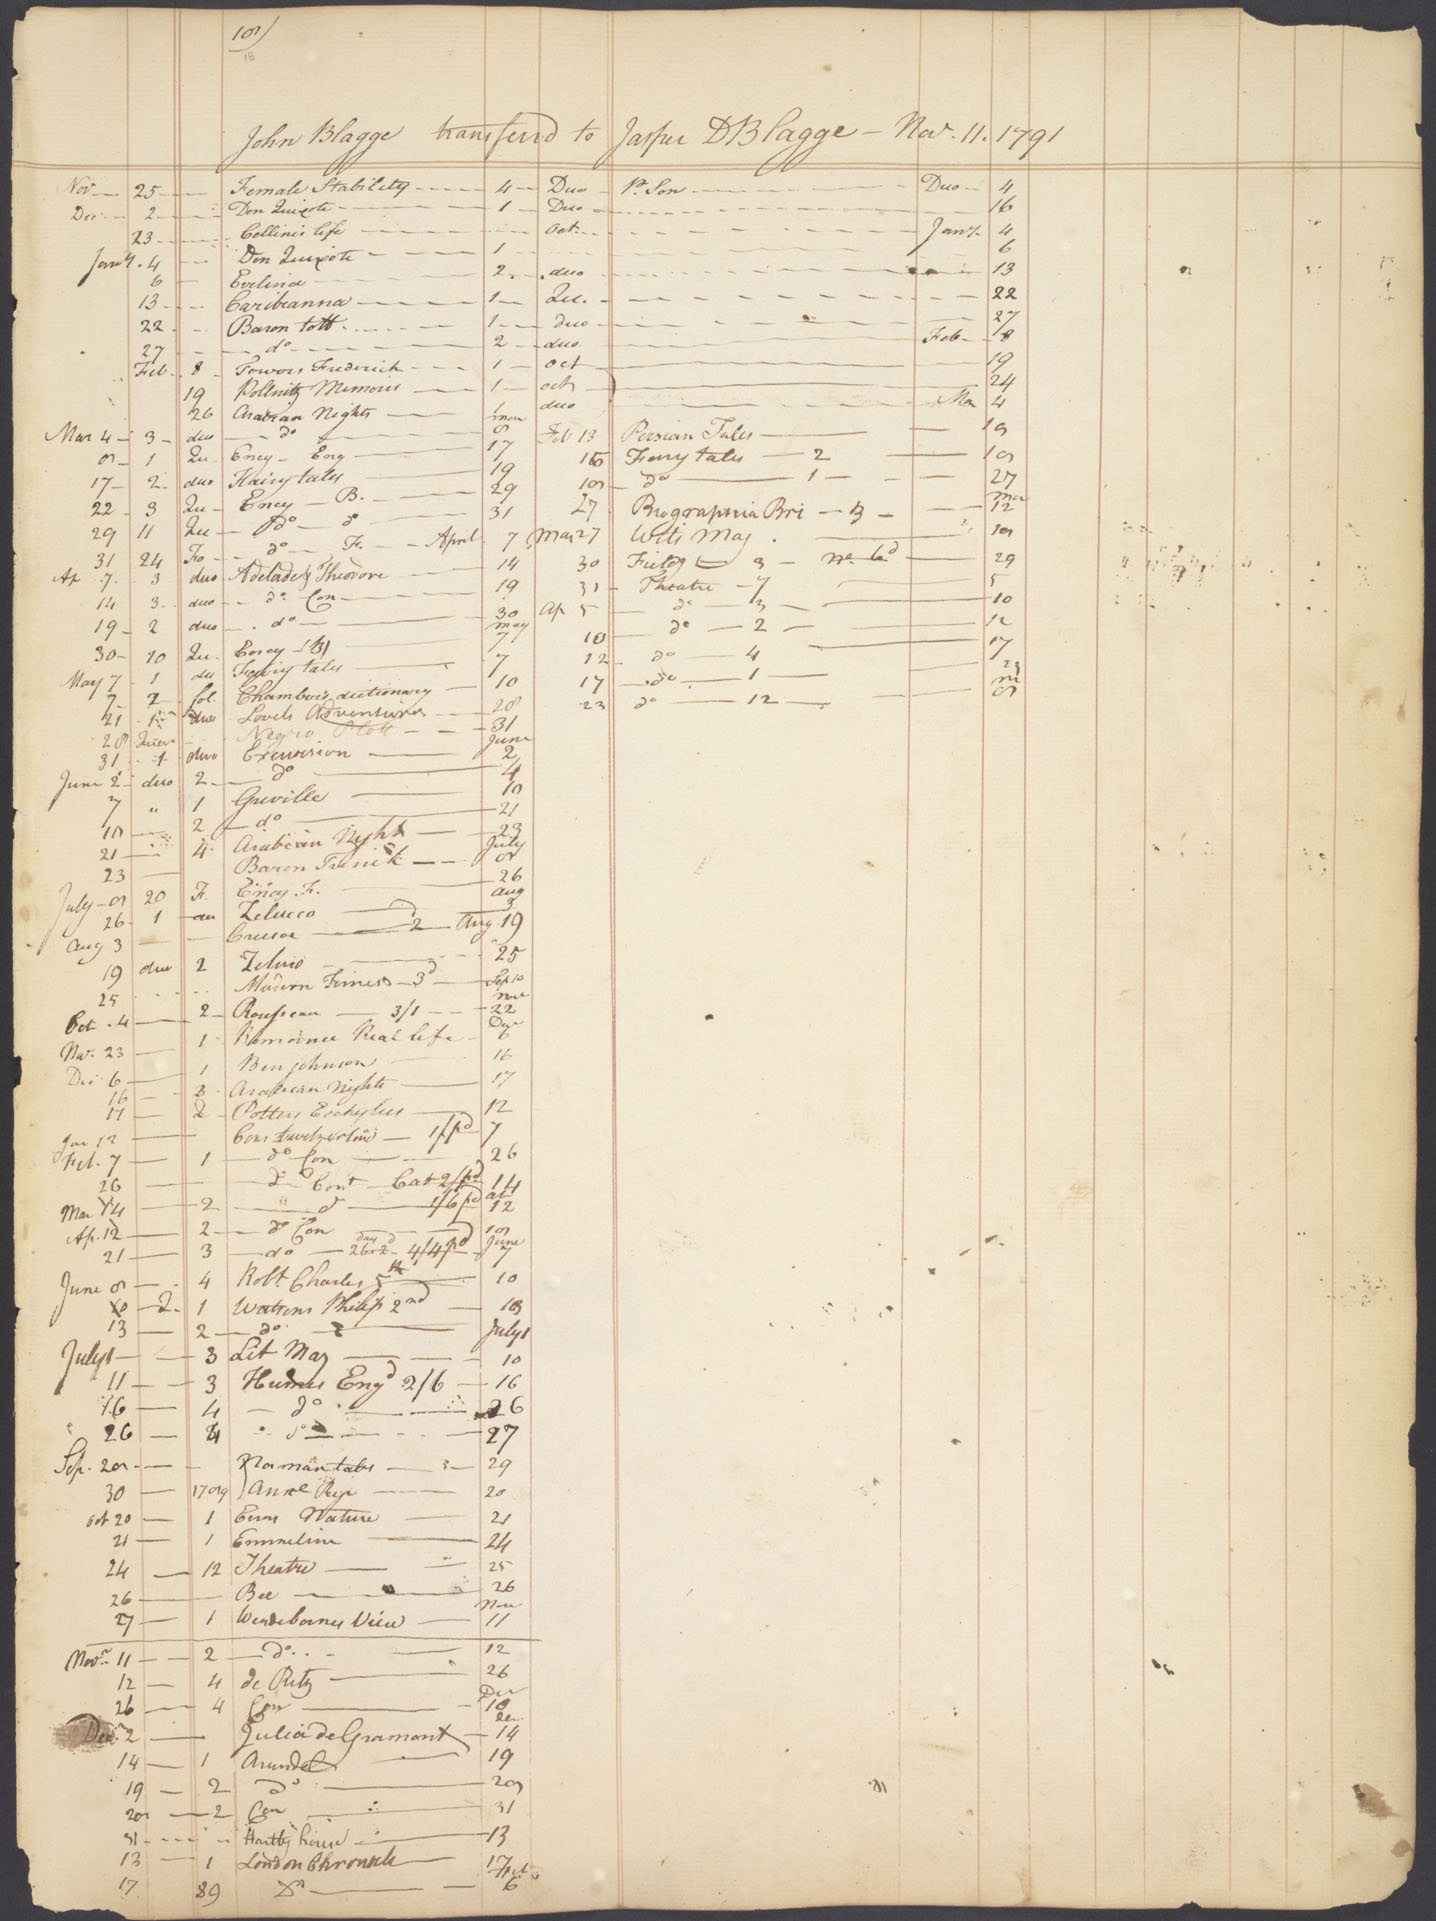 18
John Blagge transferd to Jasper D Blagge — Nov. 11. 1791
Nov — 25 — Female Stability — 4 — Duo — Pr. Son — Duo — 4
Dec — 2 — Don Quixote — 1 — Duo — 16
23 — Cellinis life — Oct. — Jany. 4
Jany. 4 — Don Quixote — 1 — 6
6 — Evelina — 2 — duo — 13
13 — Caribeanna — 1 — Qu. — 22
22 — Baron tott — 1 — duo — 27
27 — do — 2 — duo — Feb — 8
Feb. 8 — Towers Frederick — 1 — oct — 19
19 Pollnitz Memoirs — 1 — oct — 24
26 Arabian Nights — 1 duo — Mar 4
Mar 4 — 3 — duo — do — Mar 8 Feb 13 Persian Tales — 18
8 — 1 Qu — Ency — Eng — 17 15 Fairy tales — 2 — 18
17 — 2 duo Fairy tales — 19 18 — do — 1 — 27
22 — 3 Qu — Ency — B. — 29 27 Biographia Bri — 3 — Mar 12
29 11 Qu — do — do 31 Mar 27 Wits Mag. — 18
31 24 Fo — do — F. — April 7 30 Fieldg — 3 — 29
Ap 7. 3 duo Adelade & Theodore — 14 31 — Theatre — 7 — 5
14 3. duo — do Con — 19 Ap 5 — do — 3 — 10
19 — 2 duo — do — 30 10 — do — 2 — 12
30 — 10 Qu. Ency — B — May 7 12 — do — 4 — 17
May 7 — 1 du Fairy tales — 7 17 — do — 1 — 23
7 — 2 fol. Chambers dictionary — 10 23 do — 12 — 8
21 — 1 duo Lovels Adventures — 28
28 Negro Plot — 31
31 — 1 duo Excursion — June 2
June 2 — duo 2 — do — 4
7 " 1 Greville — 10
10 — 2 — do — 21
21 — 4 Arabian Nights — 23
23 — Baron Trenck — July 8
July — 8 20 F. Ency. F. — 26
26 — 1 — du Zelucco — Aug 3
Aug 3 — Crusoe — 2 — Aug. 19
19 duo 2 Zeluco — 25
25 Modern Times — 3d — Sep 10
Oct. 4 — 2 — Rousseau — 3/1 — Nov 22
Nov. 23 — 1 Romance Real life — Dec 6
Dec. 6 — 1 Ben Johnson — 16
16 — 3 Arabian Nights — 17
17 — 2 — Potters Eschylus — 12
Jan 12 — Coxs Switzerland — 1/pd — 7
Feb. 7 — 1 — do Con — 26
26 — do Cont — Cat 2/pd 14
Mar 14 — 2 — do — 1/6 pd 12
Ap. 12 — 2 — do Con — 18
21 — 3 — do — 4/4 pd June 7
June 8 — 4 Robt. Charles 5th — 10
10 — 2. 1 Watsons Philip 2nd — 13
13 — 2 — do — July 1
July 1 — 3 Lit Mag — 10
11 — 3 Humes Engd 2/6 — 16
16 — 4 — do — 26
26 — 4 do — 27
Sep. 28 — Norman tales — 3 — 29
30 — 1789 Annl Regr — 20
Oct 20 — 1 Errors Nature — 21
21 — 1 Emmeline — 24
24 — 12 Theatre — 25
26 — Bee — 26
27 — 1 Wendebornes View — Nov 11
Novr. 11 — 2 — do — 12
12 — 4 de Retz — 26
26 — 4 Con — Dec 10
Dec. 2 — Julia de Gramont — 14
14 — 1 Arundel — 19
19 — 2 do — 28
28 — 2 Con — 31
31 — Hartly house — 13
13 — 1 London Chronicle — 17
17 89 Do — Feb 6